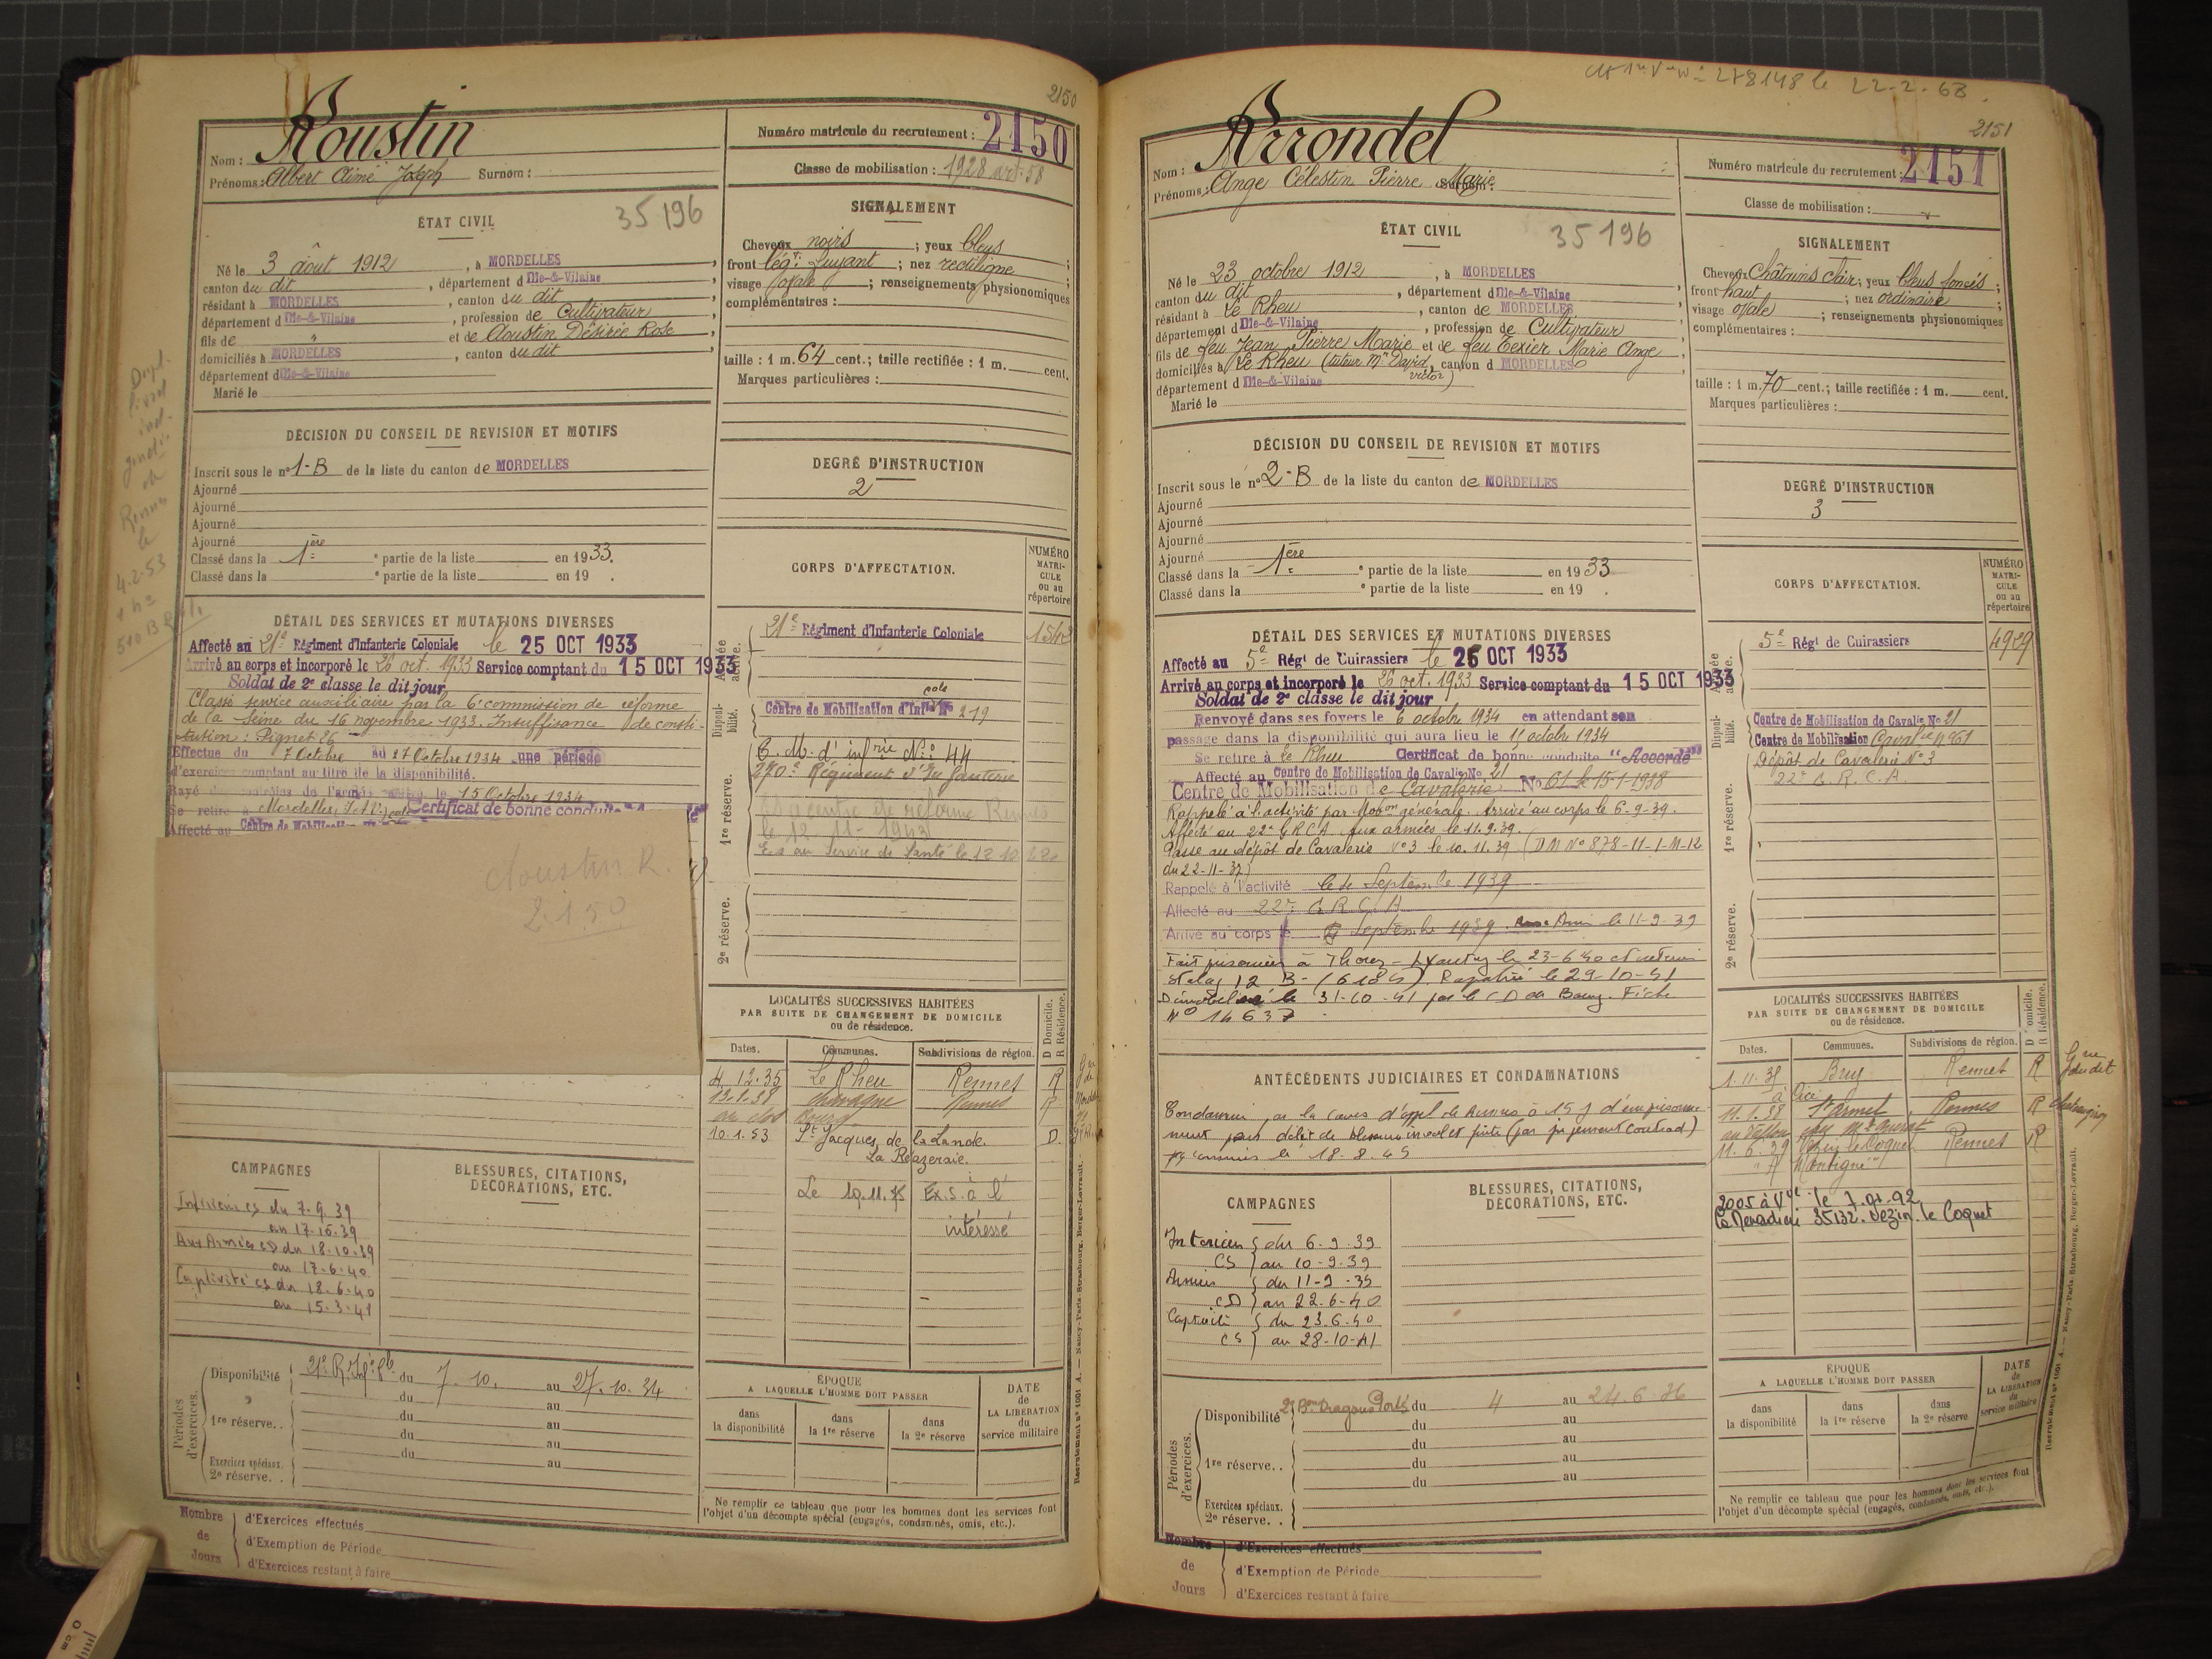 2150
Aoustin
Nom :
Prénoms : Albert Aimé Joseph Surnom :
Numéro matricule du recrutement : 2150
Classe de mobilisation : 1928 art. 58
ÉTAT CIVIL
35196
Né le 3 août 1912, à MORDELLES
canton du dit, département d Ille-&-Vilaine
résidant à MORDELLES, canton du dit
département d Ille-&-Vilaine, profession de Cultivateur
fils de " et de Aoustin Désirée Rose
domiciliés à MORDELLES, canton du dit
département d Ille-&-Vilaine
Marié le
SIGNALEMENT
Cheveux noirs ; yeux bleus ;
front légt fuyant ; nez rectiligne ;
visage ovale ; renseignements physionomiques
complémentaires :
taille : 1 m. 64 cent.; taille rectifiée : 1 m. cent.
Marques particulières :
DÉCISION DU CONSEIL DE REVISION ET MOTIFS
Inscrit sous le n° 1-B de la liste du canton de MORDELLES
Ajourné
Ajourné
Ajourné
Ajourné
Classé dans la 1ère e partie de la liste en 1933.
Classé dans la e partie de la liste en 19 .
DEGRÉ D'INSTRUCTION
2
DÉTAIL DES SERVICES ET MUTATIONS DIVERSES
Affecté au 21e Régiment d'Infanterie Coloniale le 25 OCT 1933
Arrivé au corps et incorporé le 26 oct. 1933 Service comptant du 15 OCT 1933
Soldat de 2e classe le dit jour
Classé service auxiliaire par la 6e commission de réforme
de la Seine du 16 novembre 1933. Insuffisance de consti-
tution : Pignet 26
Effectue du 7 Octobre au 27 Octobre 1934 une période
d'exercices comptant au titre de la disponibilité.
Rayé des contrôles de l'armée active le 15 Octobre 1934
Se retire à Mordelles, I.&V. Certificat de bonne conduite
Affecté au Centre de Mobilisation
Aoustin R.
2150
CORPS D'AFFECTATION.
NUMÉRO MATRICULE ou au répertoire
Armée active.
21e Régiment d'Infanterie Coloniale
Disponibilité.
Centre de Mobilisation d'Infie Cole N° 219
1re réserve.
C. M. d'infrie N° 44
270e Régiment d'Infanterie
centre de réforme Rennes
le 12-11-1943
Ex au Service de Santé le 12 10
2e réserve.
LOCALITÉS SUCCESSIVES HABITÉES
PAR SUITE DE CHANGEMENT DE DOMICILE
ou de résidence.
D Domicile. R Résidence.
Dates. Communes. Subdivisions de région.
4.12.35 Le Rheu Rennes R
Chavagne Rennes R
10.1.53 St Jacques de la Lande. D.
Le 19.11. Ex.S. à l'
intéressé
CAMPAGNES
Intérieur cs du 7.9.39
au 17.10.39
Aux Armées CD du 18.10.39
au 17.6.40
Captivité cs du 18.6.40
au 15.3.41
BLESSURES, CITATIONS,
DÉCORATIONS, ETC.
Périodes d'exercices.
Disponibilité 21e R. Ife du 7.10. au 27.10.34
du au
1re réserve. . du au
du au
du au
Exercices spéciaux.
2e réserve. .
ÉPOQUE
A LAQUELLE L'HOMME DOIT PASSER
dans la disponibilité
dans la 1re réserve
dans la 2e réserve
DATE de LA LIBÉRATION du service militaire
Ne remplir ce tableau que pour les hommes dont les services font
l'objet d'un décompte spécial (engagés, condamnés, omis, etc.).
Nombre de Jours
d'Exercices effectués
d'Exemption de Période
d'Exercices restant à faire
Recrutement n° 1001 A. — Nancy-Paris-Strasbourg, Berger-Levrault.
278148 le 22-2-68.
2151
Arrondel
Nom :
Prénoms : Ange Célestin Pierre Marie Surnom :
Numéro matricule du recrutement : 2151
Classe de mobilisation :
ÉTAT CIVIL
35196
Né le 23 octobre 1912, à MORDELLES
canton du dit, département d Ille-&-Vilaine
résidant à Le Rheu, canton de MORDELLES
département d Ille-&-Vilaine, profession de Cultivateur
fils de feu Jean Pierre Marie et de feu Texier Marie Ange
domiciliés à Le Rheu (tuteur Mr David Victor), canton d MORDELLES
département d Ille-&-Vilaine
Marié le
SIGNALEMENT
Cheveux Châtains clair ; yeux bleus foncés ;
front haut ; nez ordinaire ;
visage ovale ; renseignements physionomiques
complémentaires :
taille : 1 m. 70 cent.; taille rectifiée : 1 m. cent.
Marques particulières :
DÉCISION DU CONSEIL DE REVISION ET MOTIFS
Inscrit sous le n° 2-B de la liste du canton de MORDELLES
Ajourné
Ajourné
Ajourné
Ajourné
Classé dans la 1ère e partie de la liste en 1933
Classé dans la e partie de la liste en 19 .
DEGRÉ D'INSTRUCTION
3
DÉTAIL DES SERVICES ET MUTATIONS DIVERSES
Affecté au 5e Régt de Cuirassiers le 25 OCT 1933
Arrivé au corps et incorporé le 26 oct. 1933 Service comptant du 15 OCT 1933
Soldat de 2e classe le dit jour
Renvoyé dans ses foyers le 6 octobre 1934 en attendant son
passage dans la disponibilité qui aura lieu le 15 octobre 1934
Se retire à Le Rheu Certificat de bonne conduite "Accordé"
Affecté au Centre de Mobilisation de Cavalie No 21
Centre de Mobilisation de Cavalerie No 61 le 15-1-1938
Rappelé à l'activité par Mobon générale. Arrivé au corps le 6-9-39.
Affecté au 22e GRCA aux armées le 11.9.39.
Passé au dépôt de Cavalerie N°3 le 10.11.39 (DM N° 878-11-1-M-12
du 22-11-37)
Rappelé à l'activité le Septembre 1939
Affecté au 22e G.R.C.A
Arrivé au corps le 6 Septembre 1939. le 11-9-39
Fait prisonnier à le 23-6-40 et
Stalag 12 B- Rapatrié le 29-10-41
Démobilisé le 31-10-41 par le CD de Fiche
N° 14637
CORPS D'AFFECTATION.
NUMÉRO MATRICULE ou au répertoire
Armée active.
5e Régt de Cuirassiers 4929
Disponibilité.
Centre de Mobilisation de Cavalie No 21
Centre de Mobilisation Cavalie n° 61
1re réserve.
Dépôt de Cavalerie N° 3
22e G.R.C.A.
2e réserve.
ANTÉCÉDENTS JUDICIAIRES ET CONDAMNATIONS
Condamné par la cour d'appel de Rennes à 15 j d'emprisonne-
ment pour délit de (par jugement contrad)
le 18.8.45
LOCALITÉS SUCCESSIVES HABITÉES
PAR SUITE DE CHANGEMENT DE DOMICILE
ou de résidence.
D Domicile. R Résidence.
Dates. Communes. Subdivisions de région.
1.11.35 Bruz Rennes R
11.1.38 St Armel Rennes R
11.6.39 Vezin le Coquet Rennes R
35132 Vezin le Coquet
CAMPAGNES
Intérieur du 6-9-39
CS au 10-9-39
Armées du 11-9-39
CD au 22-6-40
Captivité du 23.6.40
CS au 28-10-41
BLESSURES, CITATIONS,
DÉCORATIONS, ETC.
Périodes d'exercices.
Disponibilité Bon Dragons Portés du 4 au 24.6.36
du au
du au
1re réserve. . du au
du au
Exercices spéciaux.
2e réserve. .
ÉPOQUE
A LAQUELLE L'HOMME DOIT PASSER
dans la disponibilité
dans la 1re réserve
dans la 2e réserve
DATE de LA LIBÉRATION du service militaire
Ne remplir ce tableau que pour les hommes dont les services font
l'objet d'un décompte spécial (engagés, condamnés, omis, etc.).
Nombre de Jours
d'Exercices effectués
d'Exemption de Période
d'Exercices restant à faire
Recrutement n° 1001 A. — Nancy-Paris-Strasbourg, Berger-Levrault.
0 cm